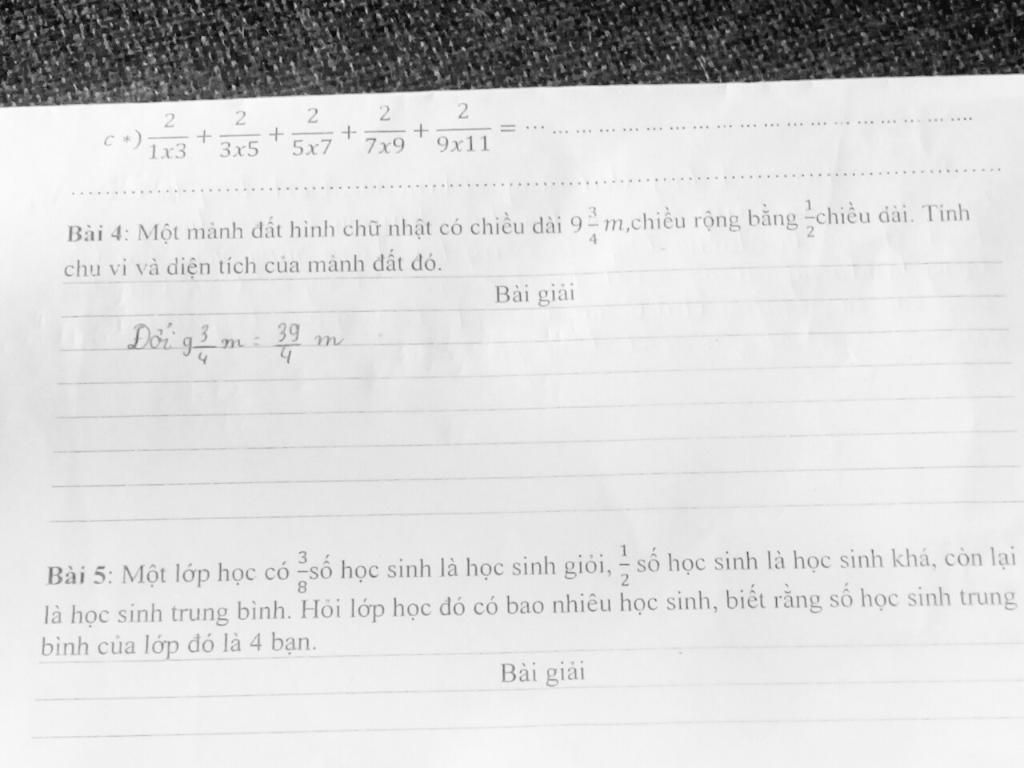 c *) 2/1x3 + 2/3x5 + 2/5x7 + 2/7x9 + 2/9x11 = ... ... ... ... ... ... ... ... ... ... ... ... ... ... ... ... ... ... ....
........................................................................................................................
Bài 4: Một mảnh đất hình chữ nhật có chiều dài 9 3/4 m,chiều rộng bằng 1/2 chiều dài. Tính
chu vi và diện tích của mảnh đất đó.
Bài giải
Đổi 9 3/4 m = 39/4 m
Bài 5: Một lớp học có 3/8 số học sinh là học sinh giỏi, 1/2 số học sinh là học sinh khá, còn lại
là học sinh trung bình. Hỏi lớp học đó có bao nhiêu học sinh, biết rằng số học sinh trung
bình của lớp đó là 4 bạn.
Bài giải